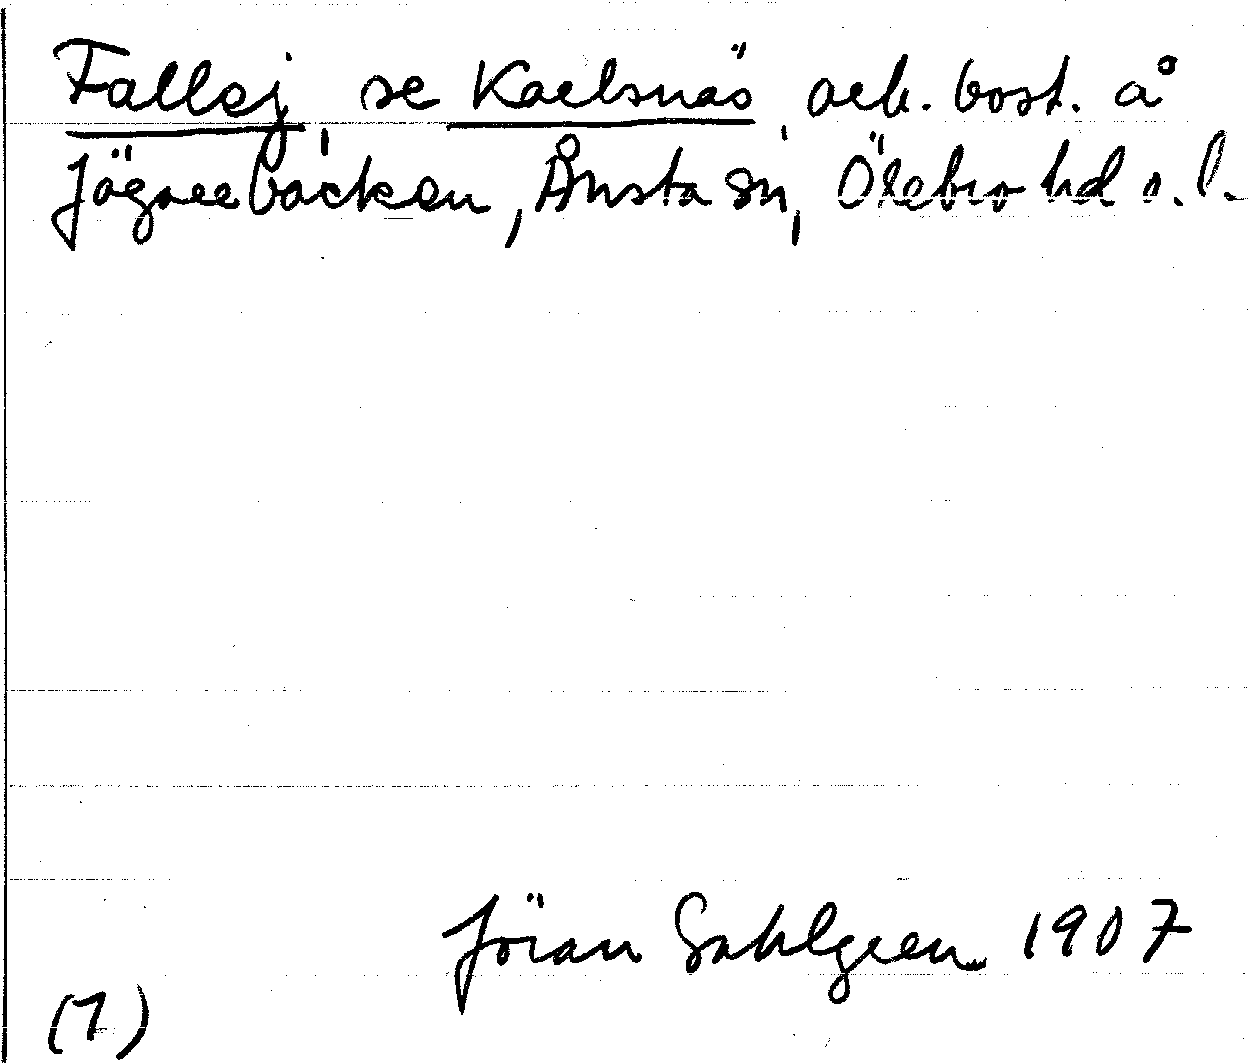 Fallej, se Karlsnäs, arb. bost. å
Jägarebacken, Ånsta sn, Örebro hd o. l.
Jöran Sahlgren 1907
(1)